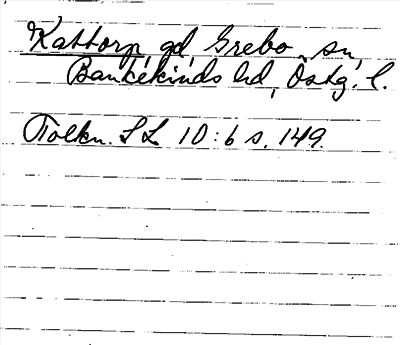 Kattorp, gd, Grebo sn,
Bankekinds hd, Östg. l.
Tolkn. SL 10:6 s. 149.